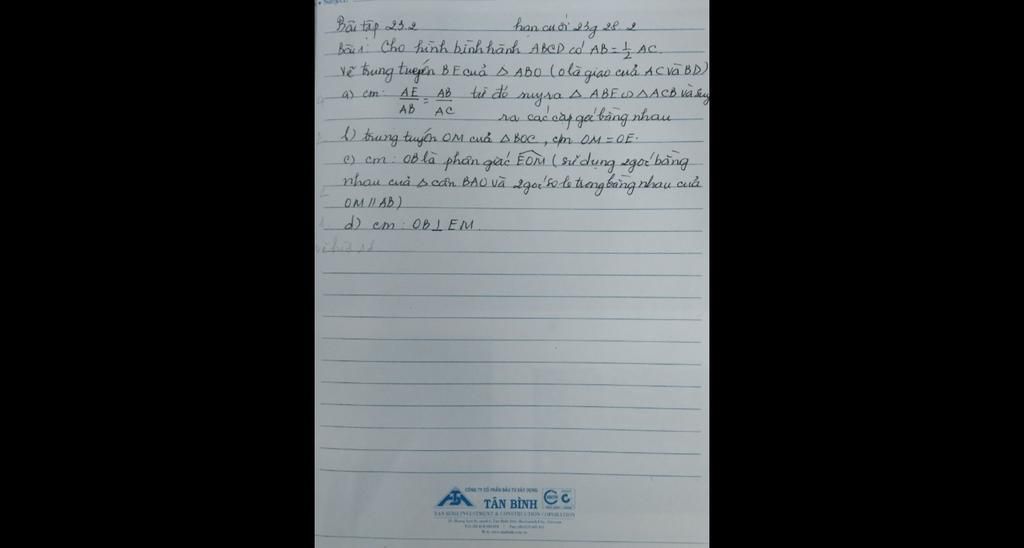 Bài tập 23.2 hạn cuối 23g 28.2
Bài 1: Cho hình bình hành ABCD có AB = 1/2 AC.
vẽ trung tuyến BE của △ ABO (O là giao của AC và BD)
a) cm: AE/AB = AB/AC từ đó suy ra △ ABE ∽ △ ACB và suy
ra các cặp góc bằng nhau
b) trung tuyến OM của △BOC, cm OM = OE.
c) cm: OB là phân giác EOM (sử dụng 2 góc bằng
nhau của △ cân BAO và 2 góc so le trong bằng nhau của
OM // AB)
d) cm: OB ⊥ EM.
CÔNG TY CỔ PHẦN ĐẦU TƯ XÂY DỰNG
TÂN BÌNH
TAN BINH INVESTMENT & CONSTRUCTION CORPORATION